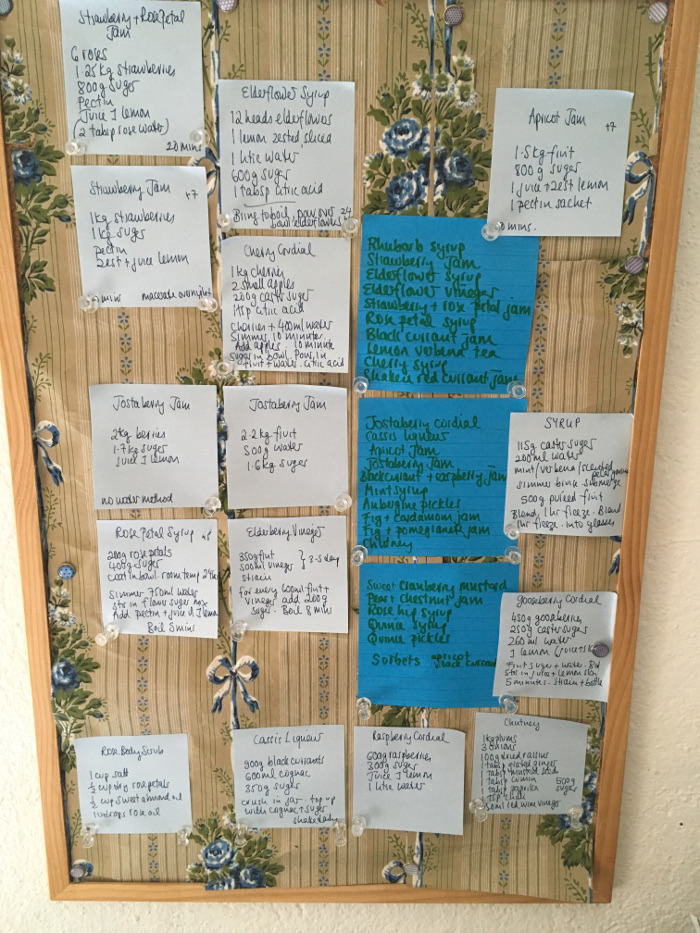 Strawberry + Rose Petal
Jam
6 roses
1.25kg strawberries
800g sugar
Pectin
Juice 1 lemon
(2 tabsp rose water)
20 mins
Elderflower Syrup
12 heads elderflowers
1 lemon zested sliced
1 litre water
600g sugar
1 tabsp citric acid
Bring to boil, pour over 24
bowl elderflowers
Apricot Jam +7
1.5kg fruit
800g sugar
1 juice + zest lemon
1 pectin sachet
mins.
Strawberry Jam +7
1kg strawberries
1kg sugar
Pectin
Zest + juice lemon
mins macerate overnight
Cherry Cordial
1kg cherries
2 small apples
200g caster sugar
1tsp citric acid
Cherries + 400ml water
Simmer 10 minute
Add apples. 10 minute
Sugar in bowl. Pour in
fruit + water. Citric acid
Rhubarb syrup
Strawberry Jam
Elderflower syrup
Elderflower vinegar
Strawberry + rose petal jam
Rose petal syrup
Black currant jam
Lemon verbena tea
Cherry syrup
Shaken red currant jam
Jostaberry Jam
2kg berries
1.7kg sugar
Juice 1 lemon
no water method
Jostaberry Jam
2.2kg fruit
500g water
1.6kg sugar
Jostaberry cordial
Cassis liqueur
Apricot Jam
Jostaberry Jam
Blackcurrant + raspberry jam
Mint syrup
Aubergine pickles
Fig + cardamom jam
Fig + pomegranate jam
Chutney
SYRUP
115g caster sugar
200ml water
mint/verbena/scented
pelargonium
simmer
500g pured fruit
Blend, 1hr freeze. Blend
1hr freeze. into glasses
Rose Petal Syrup
200g rose petals
400g sugar
Coat in bowl. room temp 24hr
Simmer 750ml water
Stir in flower sugar mix
Add pectin + juice 1 lemon
Boil 5 mins
Elderberry Vinegar
350g fruit
500ml vinegar } 3-5 days
strain
for every 600ml fruit +
Vinegar add 200g
sugar. Boil 8 mins
Sweet Cranberry mustard
Pear + Chestnut jam
Rose hip syrup
Quince syrup
Quince pickles
Sorbets apricot
black currant
Gooseberry Cordial
450g gooseberries
250g caster sugar
260ml water
1 lemon
Fruit sugar + water. Boil
Stir in juice + lemon
5 minutes. Strain + bottle
Rose Body Scrub
1 cup salt
½ cup dry rose petals
½ cup sweet almond oil
10 drops rose oil
Cassis Liqueur
900g black currants
600ml cognac
350g sugar
Crush in jar top up
with cognac + sugar
shake daily
Raspberry Cordial
600g raspberries
300g sugar
Juice 1 lemon
1 litre water
Chutney
1kg plums
3 onions
100g dried raisins
1 tabsp grated ginger
1 tabsp mustard seeds
1 tabsp cumin 500g
1 tabsp paprika sugar
1 tsp chilli
50ml red wine vinegar